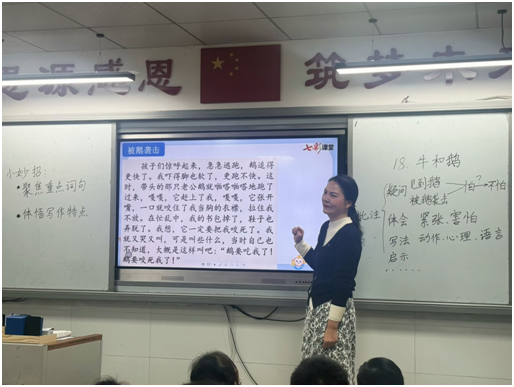 思源感恩
筑梦未来
小妙招:
• 聚焦重点词句
• 体悟写作特点
被鹅袭击
七彩课堂
孩子们惊呼起来,急急逃跑,鹅追得
更快了。我吓得脚也软了,更跑不快。这
时,带头的那只老公鹅就啪嗒啪嗒地跑了
过来,嘎嘎,它赶上了我,嘎嘎,它张开
嘴,一口就咬住了我当胸的衣襟,拉住我
不放。在忙乱中,我的书包掉了,鞋子也
弄脱了。我想,它一定要把我咬死了。我
就又哭又叫,可是叫些什么,当时自己也
不知道,大概是这样叫吧:“鹅要吃我了!
鹅要咬死我了!”
18. 牛和鹅
批注
疑问 见到鹅 被鹅袭击 怕?→不怕
体会 紧张 害怕
写法 动作、心理、语言
启示 ......